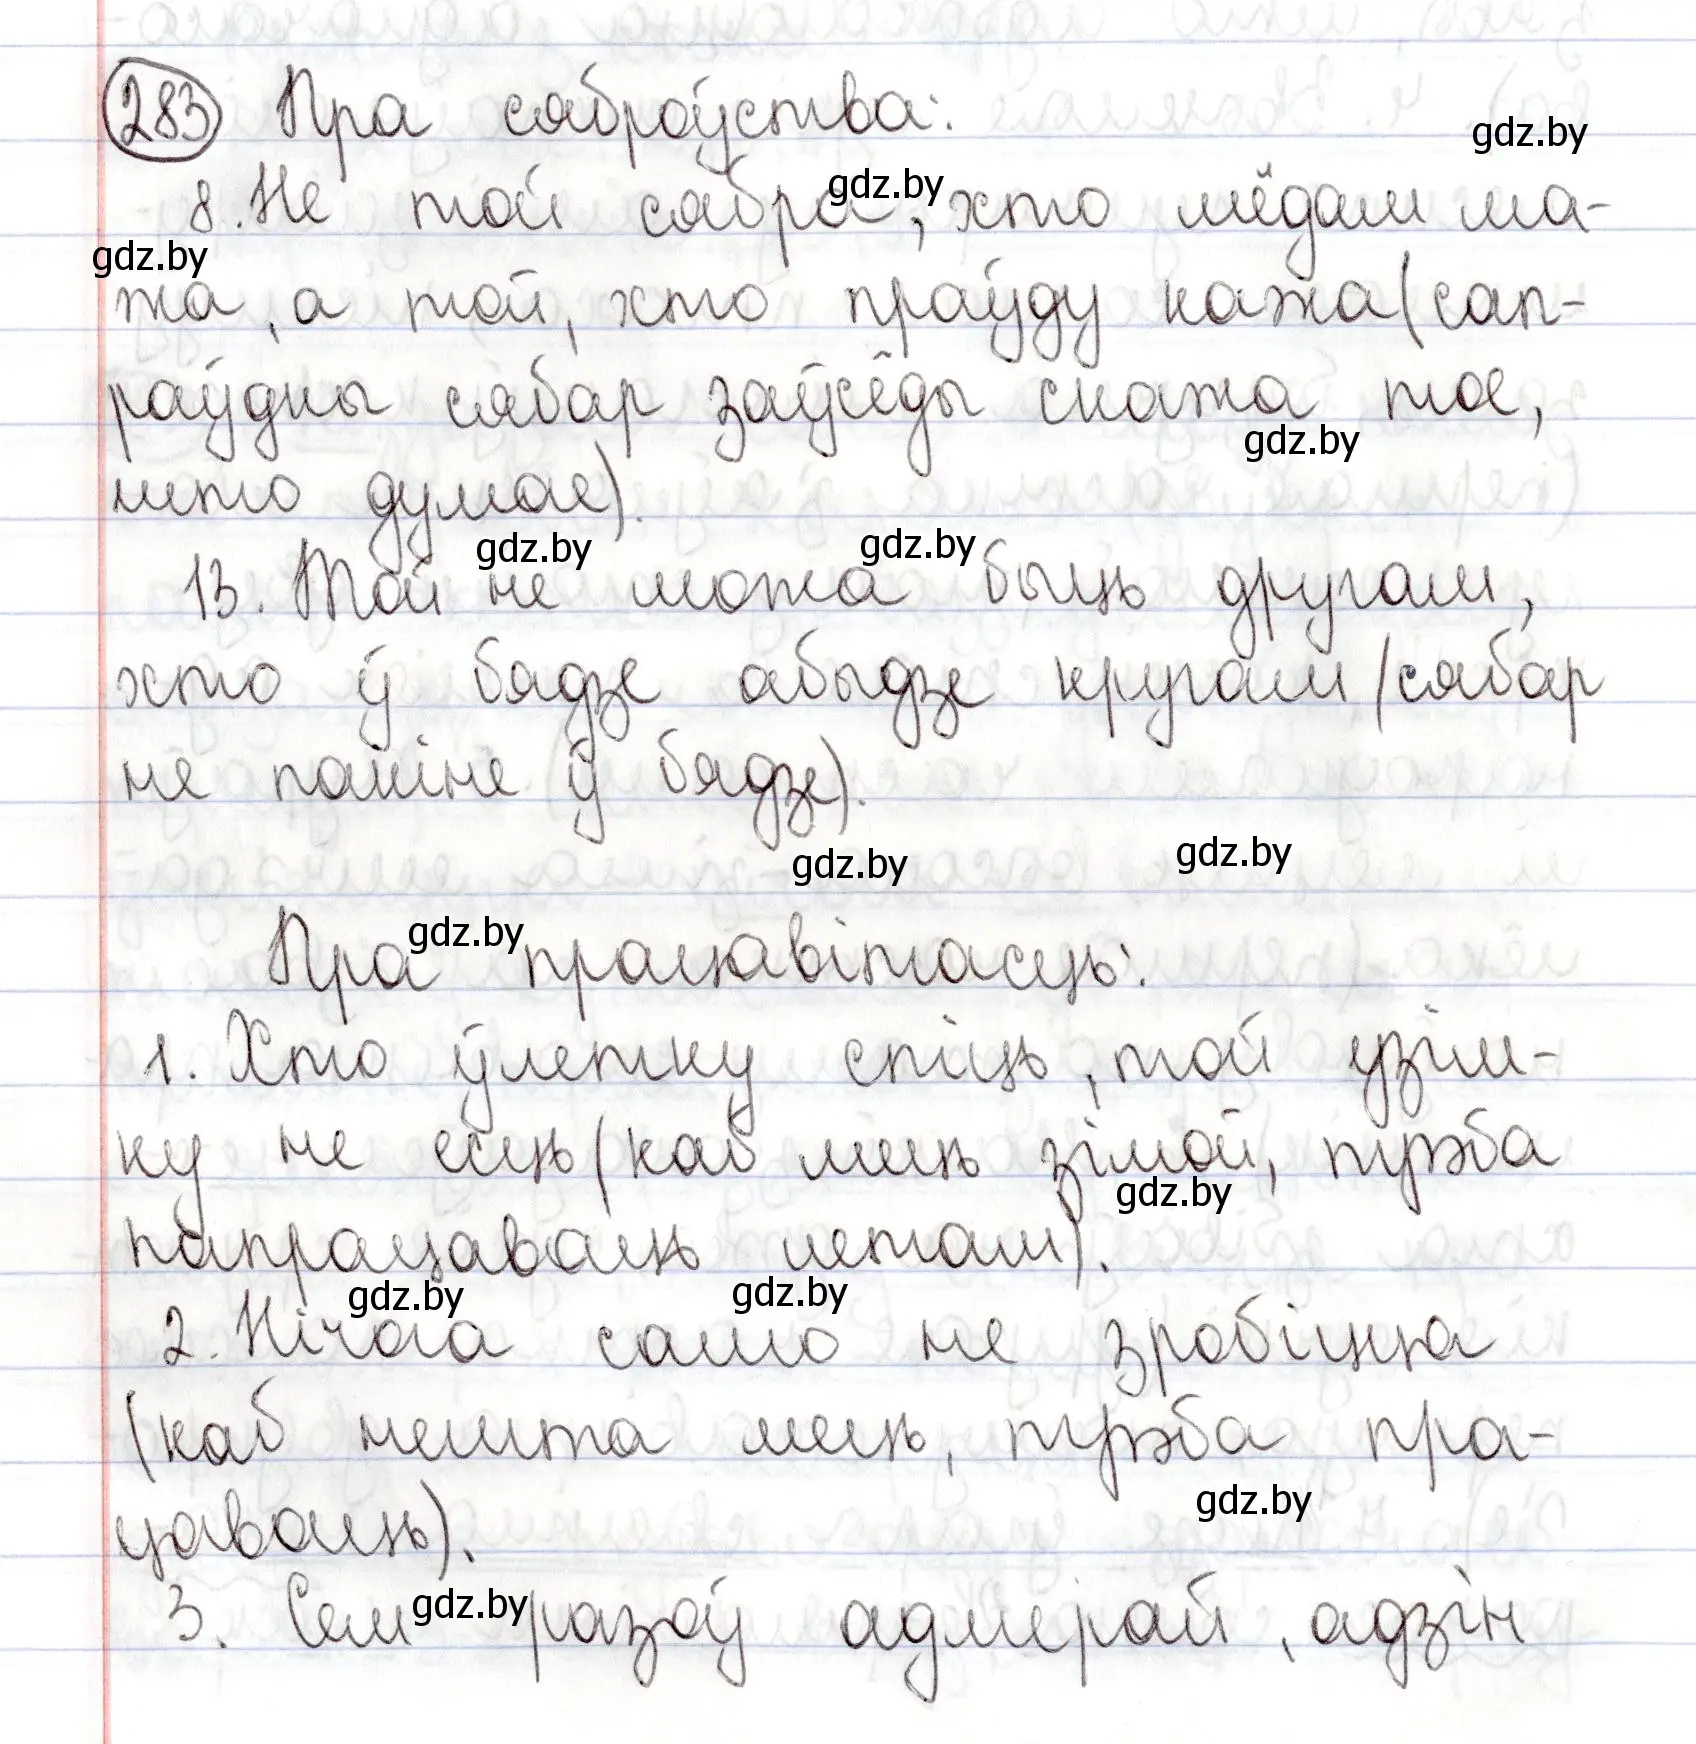 283 Пра сяброўства:
gdz.by
8. Не той сябра, хто мёдам ма-
gdz.by
gdz.by
жа, а той, хто праўду кажа (сап-
раўдны сябар заўсёды скажа тое,
gdz.by
што думае).
gdz.by gdz.by
13. Той не можа быць другам,
хто ў бядзе абыдзе кругам (сябар
не пакіне ў бядзе).
gdz.by gdz.by
gdz.by
Пра працавітасць:
1. Хто ўлетку спіць, той узім-
ку не есць (каб мець зімой, трэба
gdz.by
папрацаваць летам).
gdz.by gdz.by
2. Нічога само не зробіцца
(каб нешта мець, трэба пра-
gdz.by
цаваць).
3. Сем разоў адмерай, адзін
gdz.by